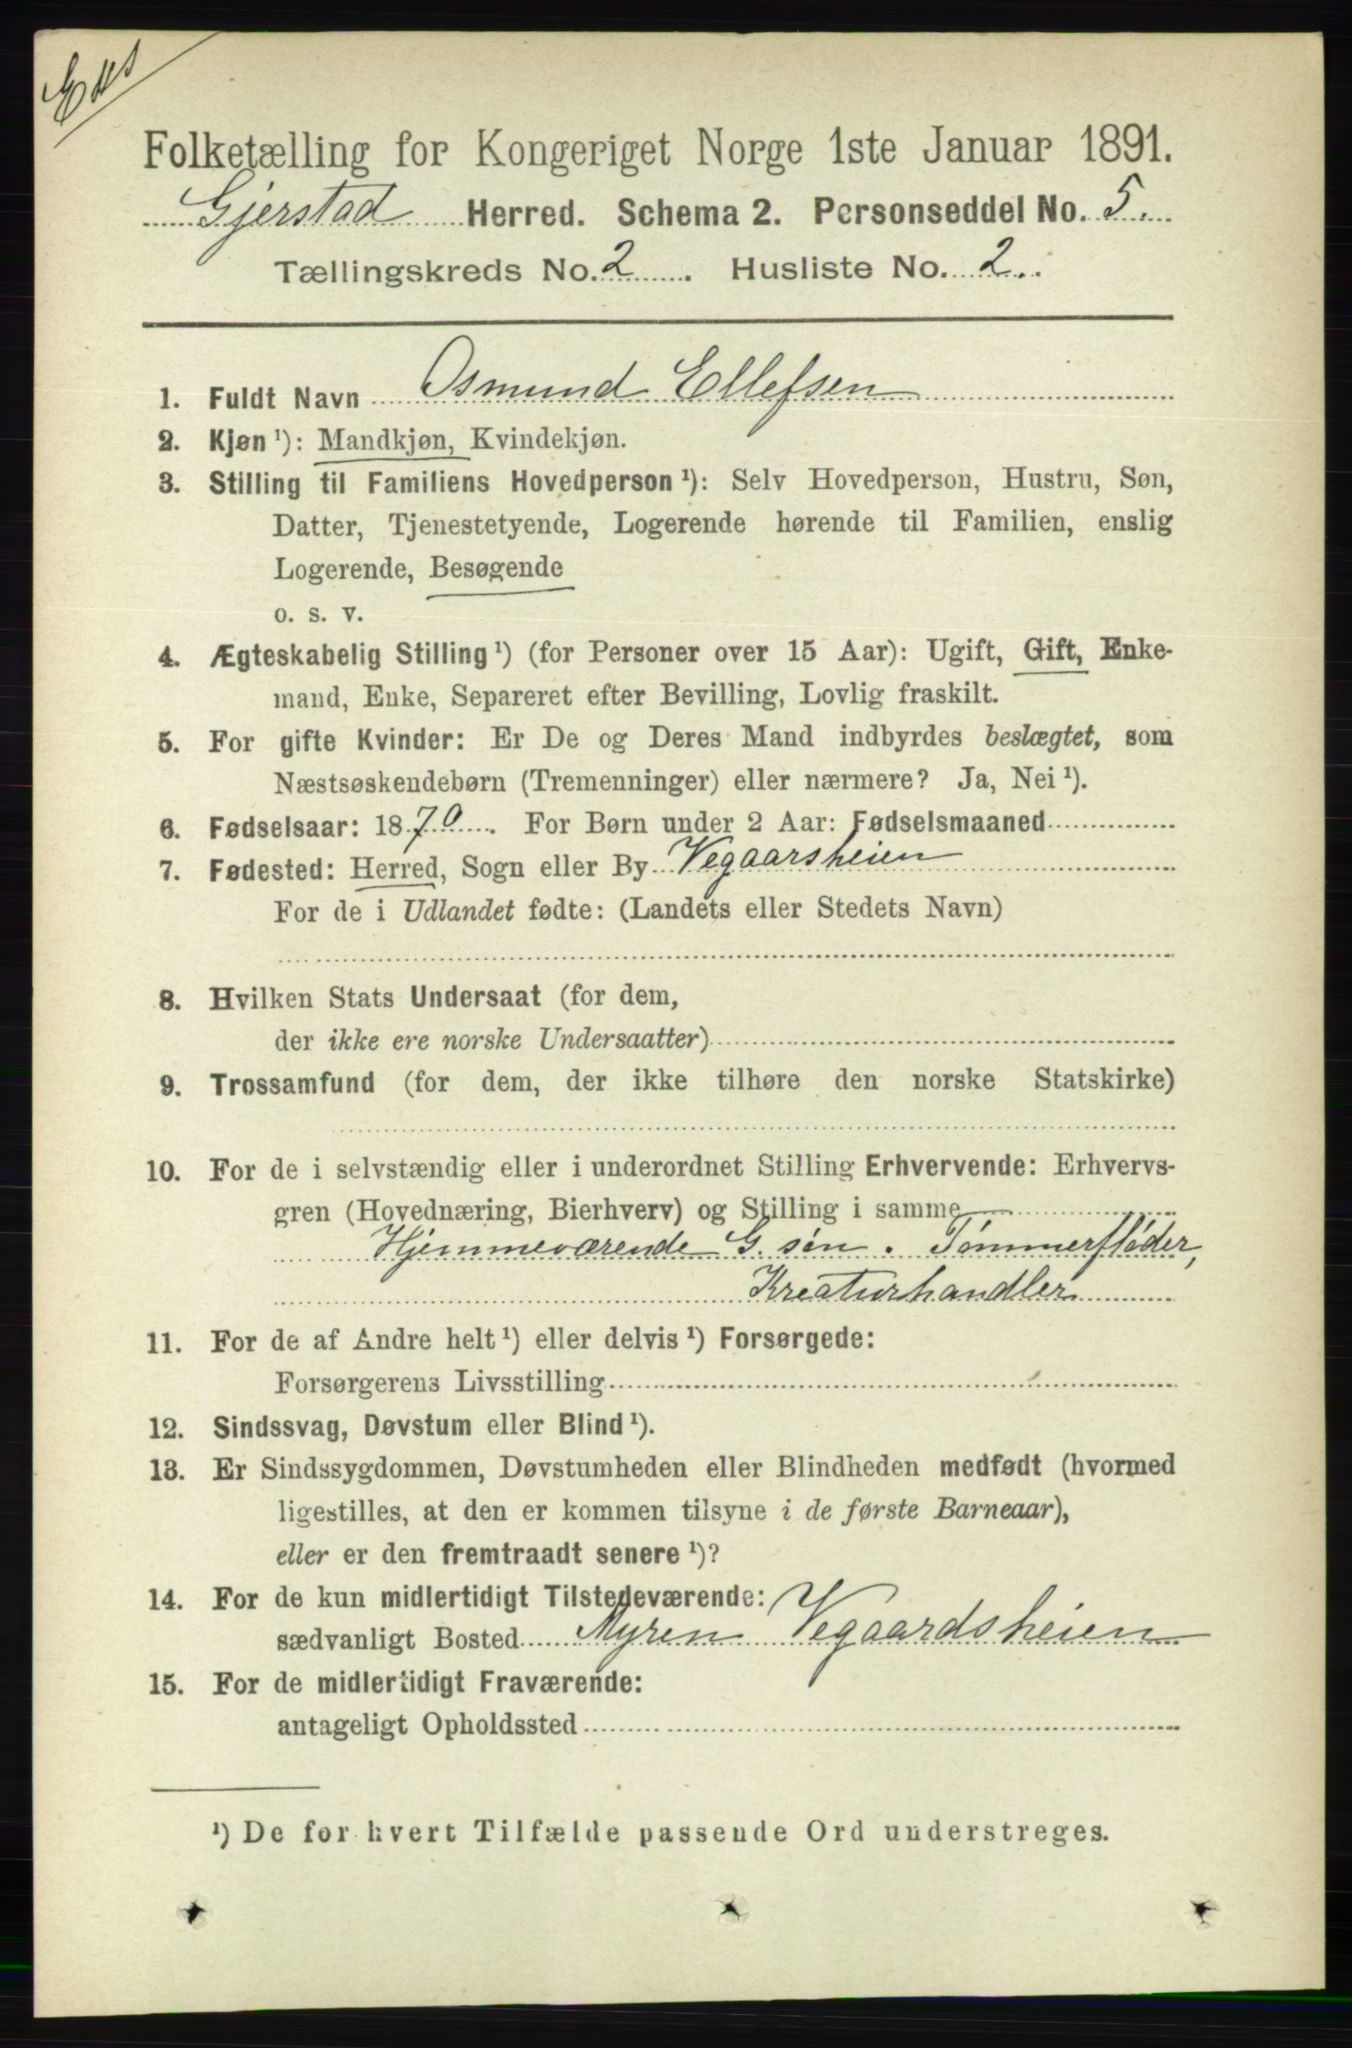 Folketælling for Kongeriget Norge 1ste Januar 1891.
Gjerstad Herred. Schema 2. Personseddel No. 5.
Tællingskreds No. 2. Husliste No. 2.
1. Fuldt Navn Osmund Ellefsen
2. Kjøn ¹): Mandkjøn, Kvindekjøn.
3. Stilling til Familiens Hovedperson ¹): Selv Hovedperson, Hustru, Søn,
Datter, Tjenestetyende, Logerende hørende til Familien, enslig
Logerende, Besøgende
o. s. v.
4. Ægteskabelig Stilling ¹) (for Personer over 15 Aar): Ugift, Gift, Enke-
mand, Enke, Separeret efter Bevilling, Lovlig fraskilt.
5. For gifte Kvinder: Er De og Deres Mand indbyrdes beslægtet, som
Næstsøskendebørn (Tremenninger) eller nærmere? Ja, Nei ¹).
6. Fødselsaar: 1870. For Børn under 2 Aar: Fødselsmaaned
7. Fødested: Herred, Sogn eller By Vegaarsheien
For de i Udlandet fødte: (Landets eller Stedets Navn)
8. Hvilken Stats Undersaat (for dem,
der ikke ere norske Undersaatter)
9. Trossamfund (for dem, der ikke tilhøre den norske Statskirke)
10. For de i selvstændig eller i underordnet Stilling Erhvervende: Erhvervs-
gren (Hovednæring, Bierhverv) og Stilling i samme
Hjemmeværende G. søn. Tømmerfløder,
Kreaturhandler
11. For de af Andre helt ¹) eller delvis ¹) Forsørgede:
Forsørgerens Livsstilling
12. Sindssvag, Døvstum eller Blind ¹).
13. Er Sindssygdommen, Døvstumheden eller Blindheden medfødt (hvormed
ligestilles, at den er kommen tilsyne i de første Barneaar),
eller er den fremtraadt senere ¹)?
14. For de kun midlertidigt Tilstedeværende:
sædvanligt Bosted Myren Vegaardsheien
15. For de midlertidigt Fraværende:
antageligt Opholdssted
¹) De for hvert Tilfælde passende Ord understreges.